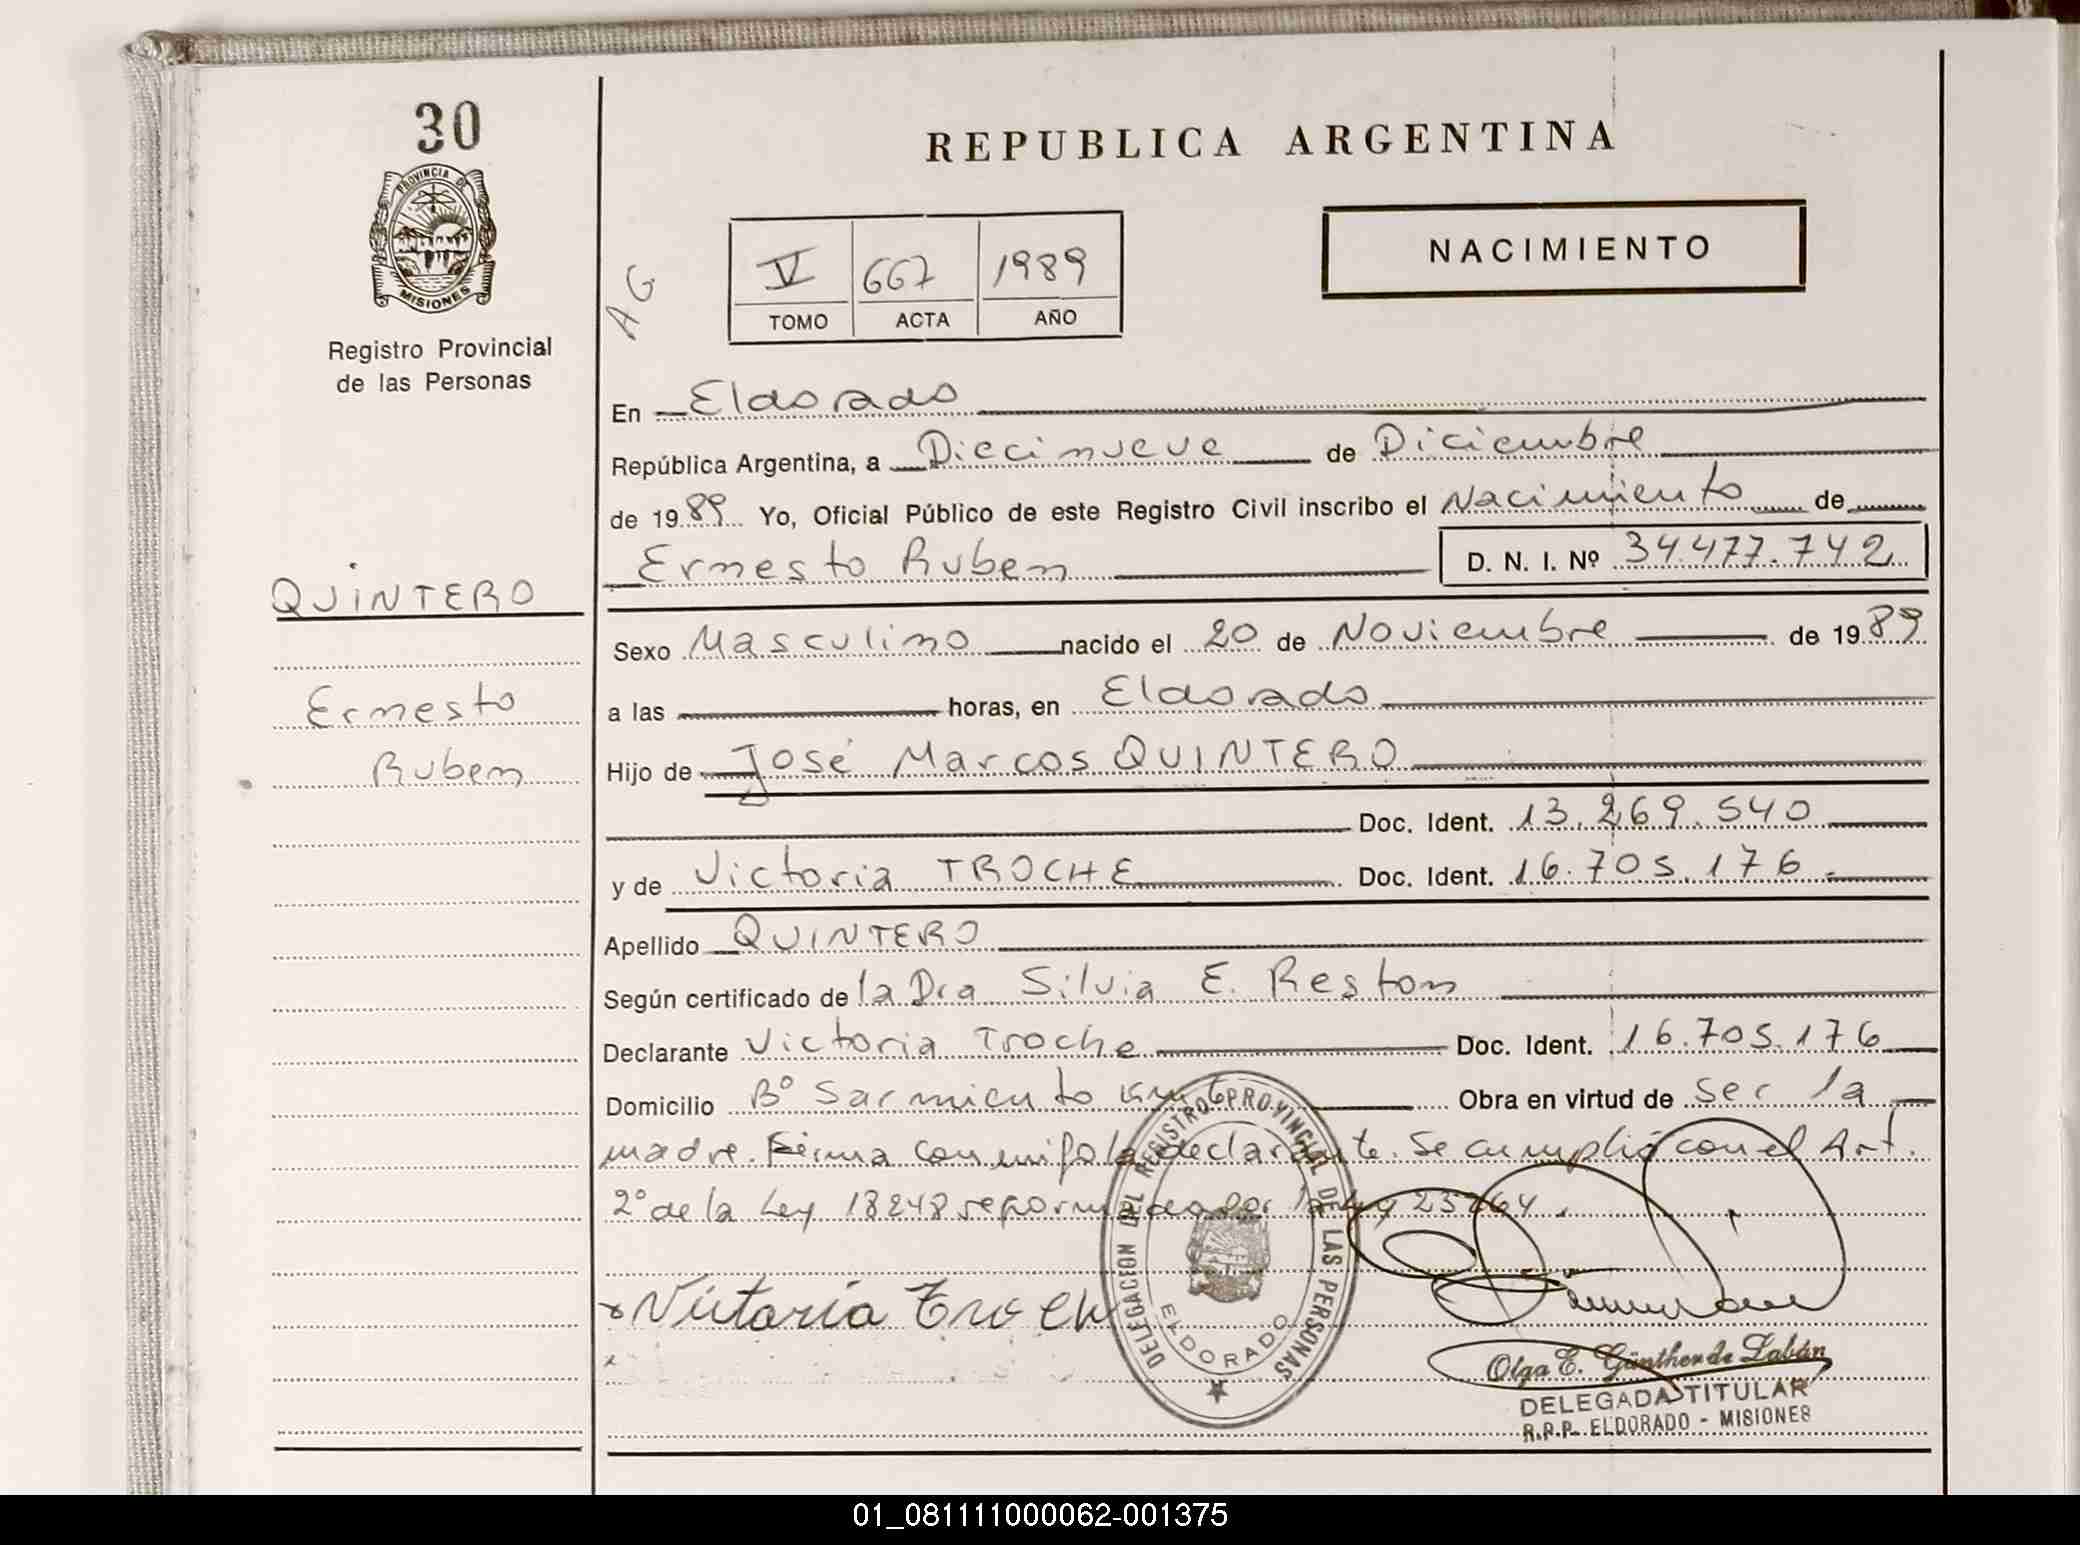 30
PROVINCIA DE
MISIONES
Registro Provincial
de las Personas
QUINTERO
Ernesto
Ruben
REPUBLICA ARGENTINA
NACIMIENTO
AG
V 667 1989
TOMO ACTA AÑO
En Eldorado
República Argentina, a Diecinueve de Diciembre
de 1989 Yo, Oficial Público de este Registro Civil inscribo el Nacimiento de
Ernesto Ruben D. N. I. Nº 34.477.742
Sexo Masculino nacido el 20 de Noviembre de 1989
a las horas, en Eldorado
Hijo de José Marcos QUINTERO
Doc. Ident. 13.269.540
y de Victoria TROCHE Doc. Ident. 16.705.176
Apellido QUINTERO
Según certificado de la Dra Silvia E. Reston
Declarante Victoria Troche Doc. Ident. 16.705.176
Domicilio Bº Sarmiento Obra en virtud de ser la
madre. Firma conmigo la declarante. Se cumplió con el Art.
2º de la Ley 18248 reformada por la Ley 23264.
DELEGACION DEL REGISTRO PROVINCIAL DE LAS PERSONAS
ELDORADO
Olga E. Günther de Zabán
DELEGADA TITULAR
R.P.P. ELDORADO - MISIONES
01_081111000062-001375